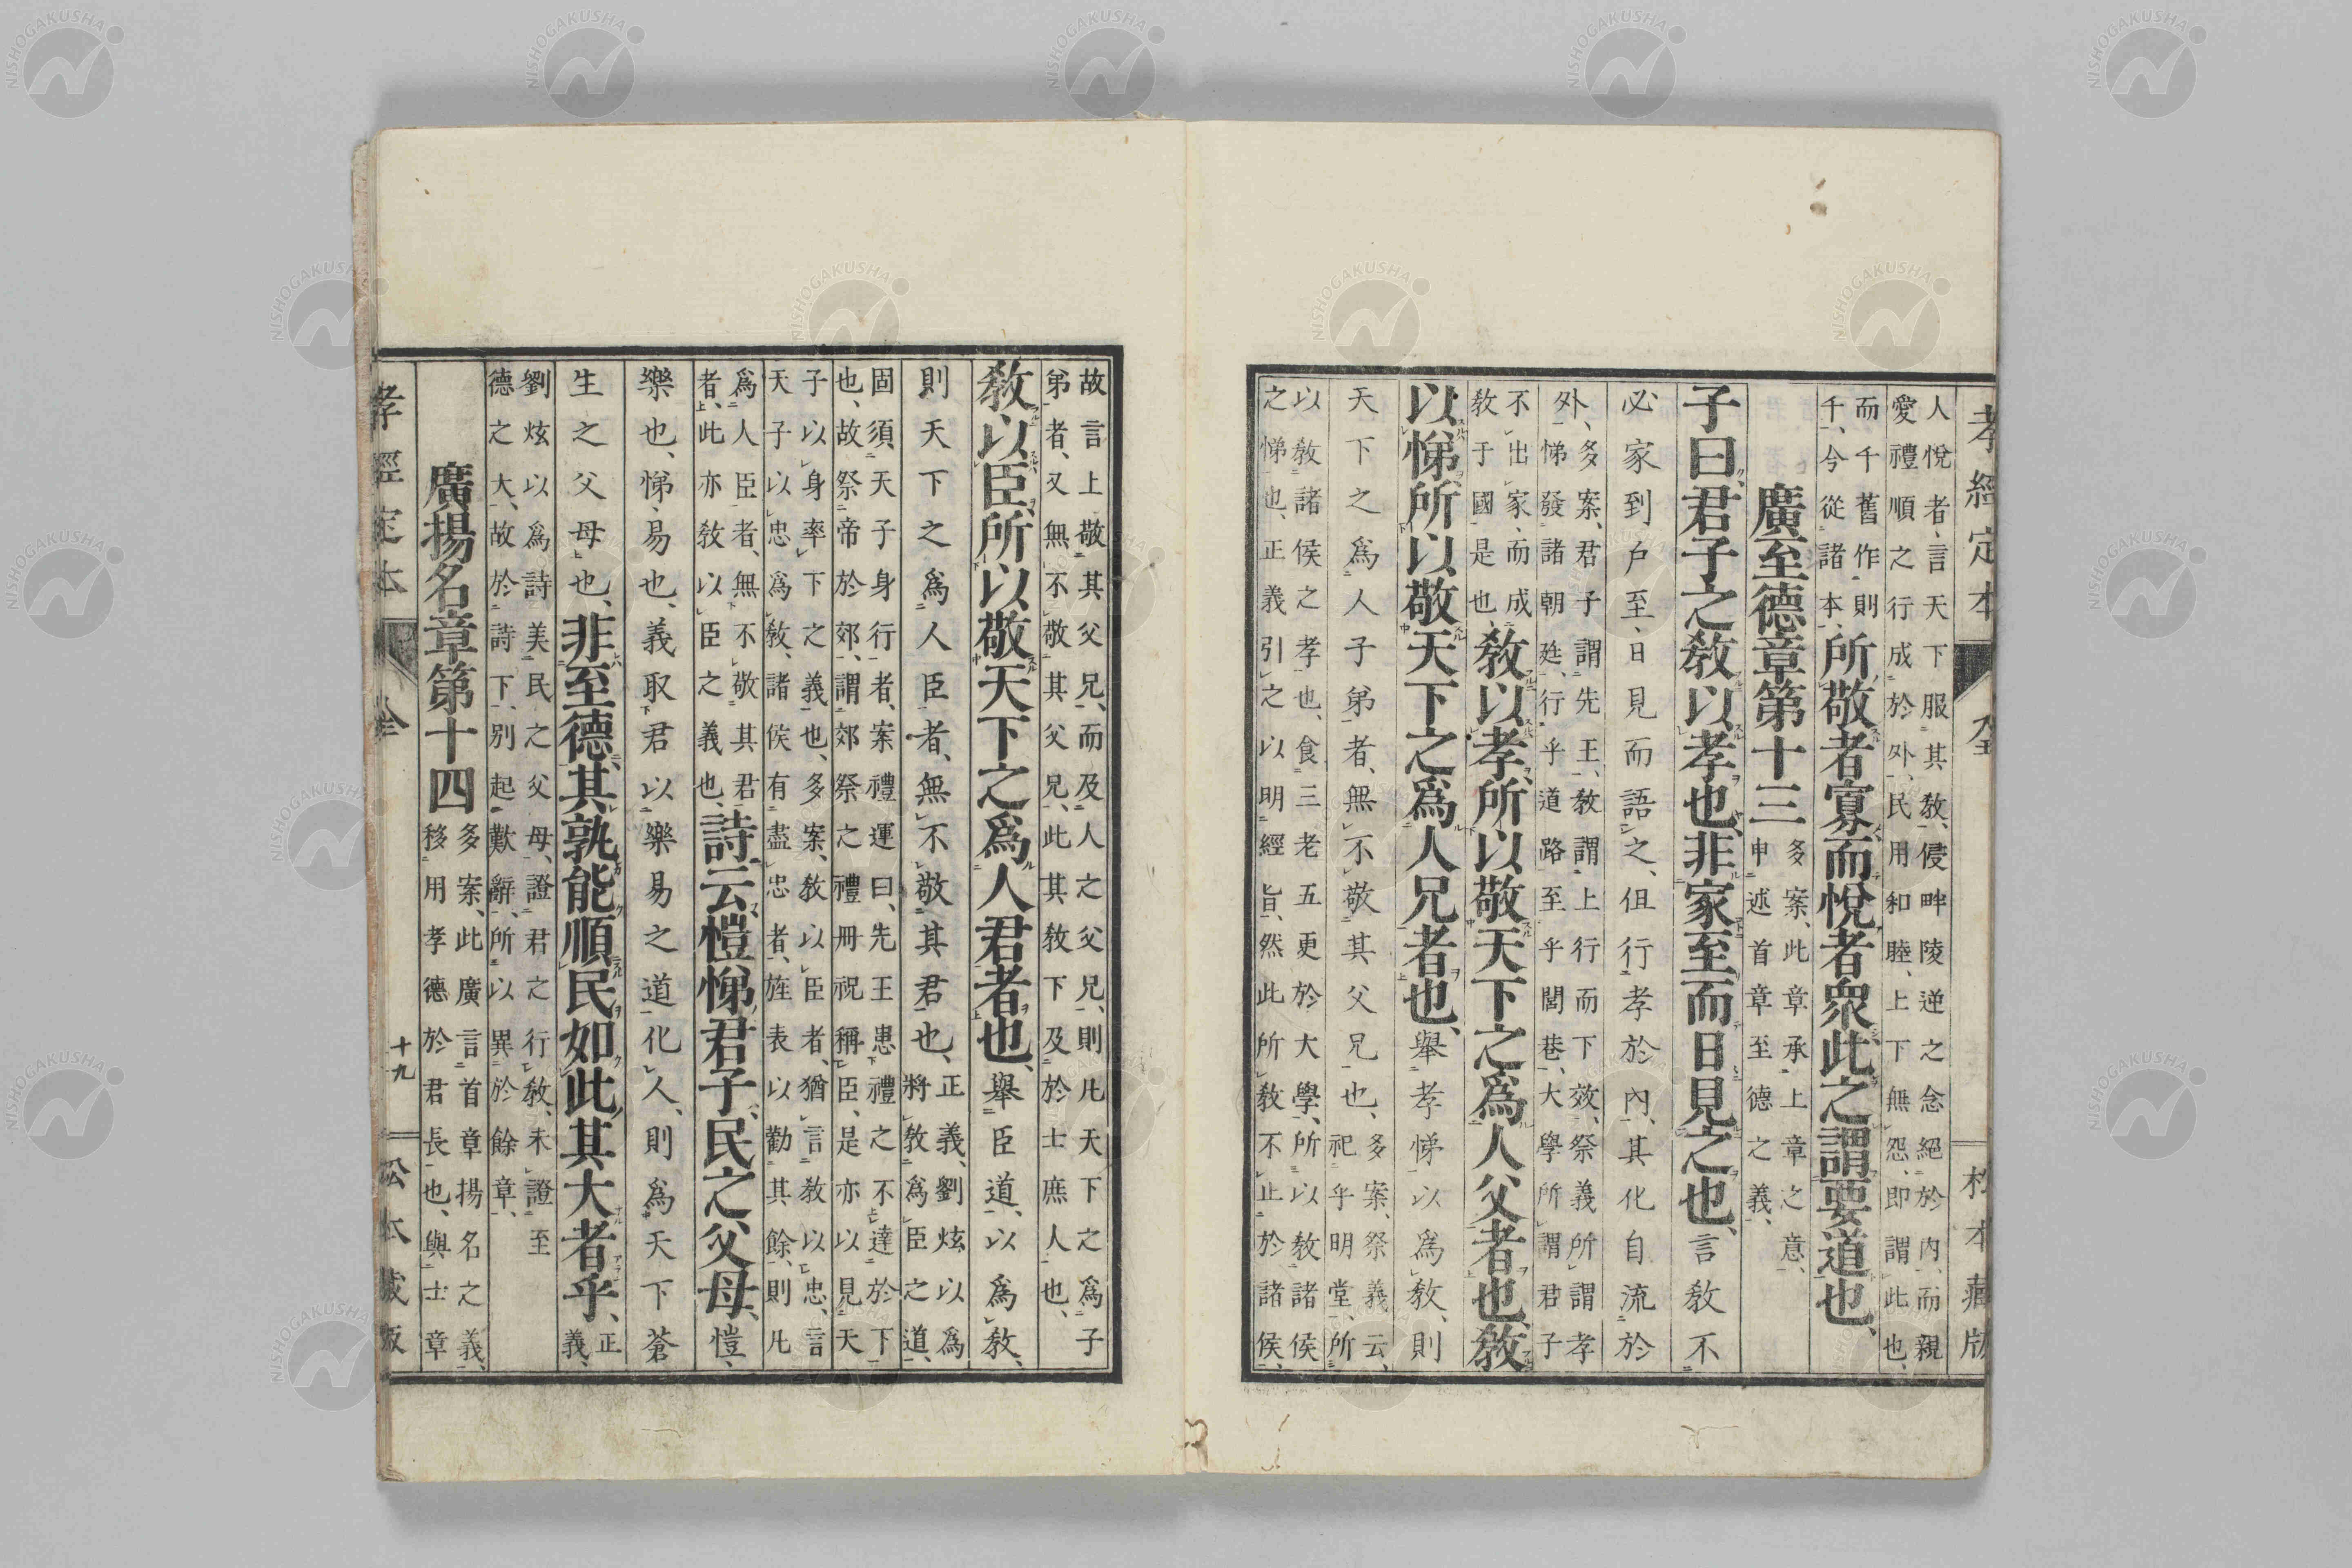 孝經定本 全 松本藏版
人悅者、言天下服其敎、侵畔陵逆之念絕於內、而親
愛禮順之行成於外、民用和睦、上下無怨、即謂此也、
而千舊作則
千、今從諸本、
所敬者寡而悅者衆此之謂要道也、
廣至德章第十三
多案、此章承上章之意、
申述首章至德之義、
子曰君子之敎以孝也非家至而日見之也、言敎不
必家到戶至、日見而語之、但行孝於內、其化自流於
外、
多案、君子謂先王、敎謂上行而下效、祭義所謂孝
悌發諸朝廷、行乎道路、至乎閭巷、大學所謂君子
不出家、而成
敎于國是也、
敎以孝、所以敬天下之爲人父者也、敎
以悌所以敬天下之爲人兄者也、舉孝悌以爲敎、則
天下之爲人子弟者、無不敬其父兄也、
多案、祭義云、
祀乎明堂、所
以敎諸侯之孝也、食三老五更於大學、所以敎諸侯
之悌也、正義引之以明經旨、然此所敎不止於諸侯、
故言上敬其父兄、而及人之父兄、則凡天下之爲子
弟者、又無不敬其父兄、此其敎下及於士庶人也、
敎以臣、所以敬天下之爲人君者也、舉臣道、以爲敎、
則天下之爲人臣者、無不敬其君也、
正義、劉炫以爲
將敎爲臣之道、
固須天子身行者、案禮運曰、先王患禮之不達於下
也、故祭帝於郊、謂郊祭之禮冊祝稱臣、是亦以見天
子以身率下之義也、多案、敎以臣者、猶言敎以忠、言
天子以忠爲敎、諸侯有盡忠者、旌表以勸其餘、則凡
爲人臣者、無不敬其君
者、此亦敎以臣之義也、
詩云愷悌君子民之父母、愷、
樂也、悌、易也、義取君以樂易之道化人、則爲天下蒼
生之父母也、非至德其孰能順民如此其大者乎、
正
義、
劉炫以爲詩美民之父母、證君之行敎、未證至
德之大、故於詩下別起歎辭、所以異於餘章、
廣揚名章第十四
多案、此廣言首章揚名之義、
移用孝德於君長也、與士章
孝經定本 全 十九 松本藏版